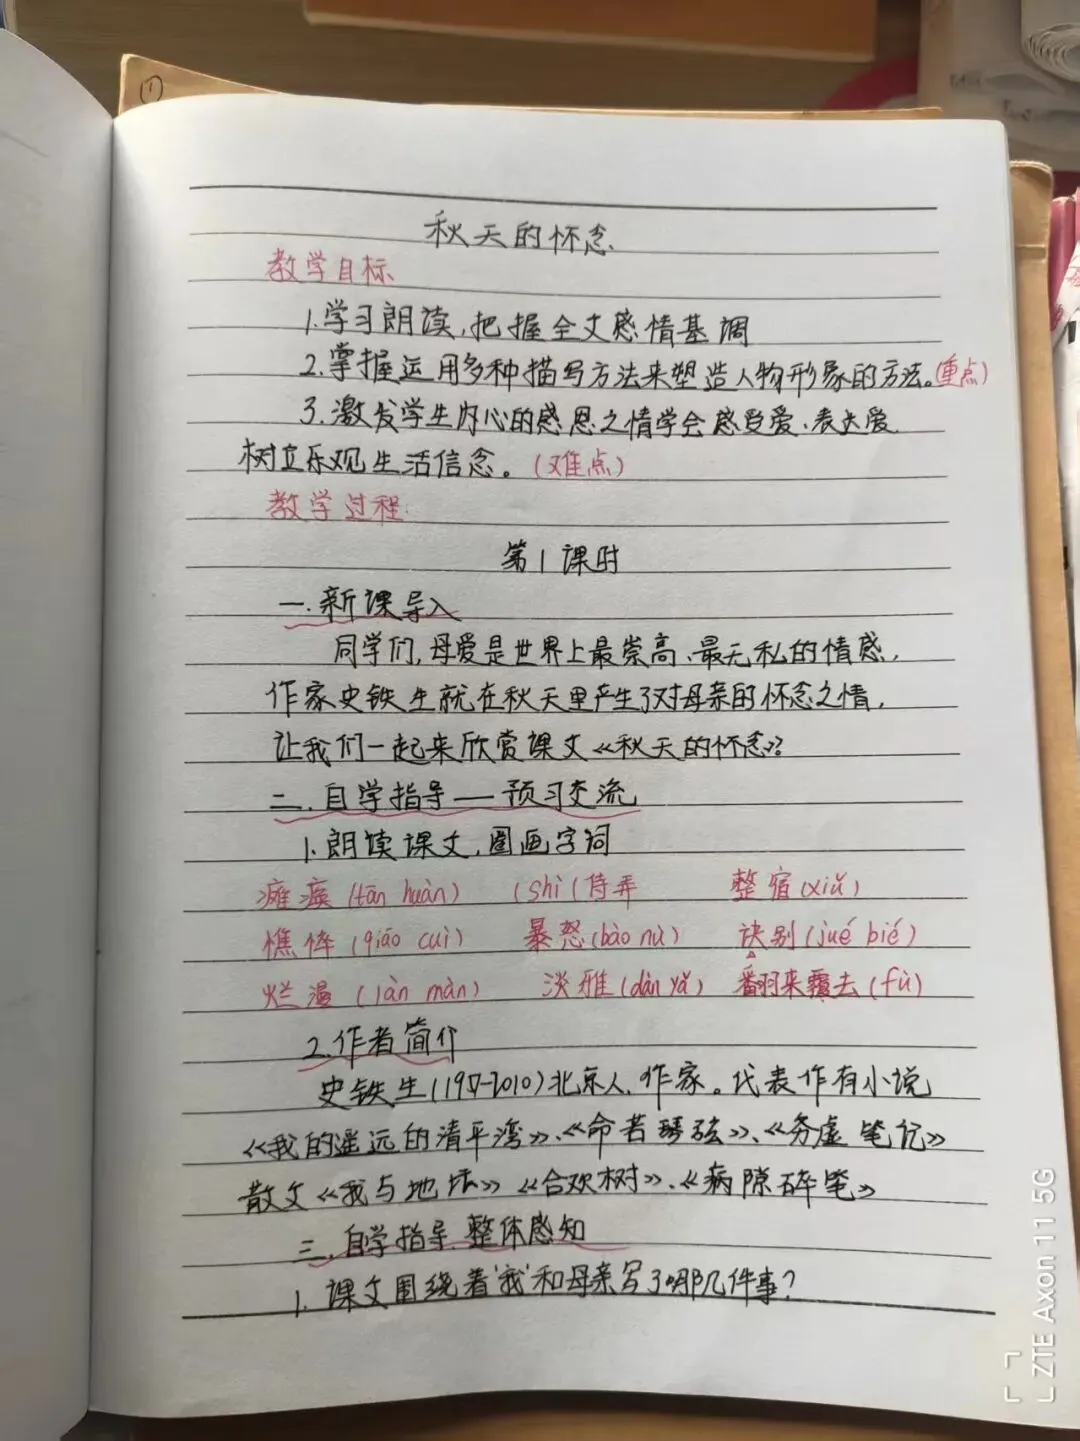 ①
秋天的怀念
教学目标
1.学习朗读,把握全文感情基调
2.掌握运用多种描写方法来塑造人物形象的方法。(重点)
3.激发学生内心的感恩之情学会感受爱、表达爱
树立乐观生活信念。(难点)
教学过程:
第1课时
一.新课导入
同学们,母爱是世界上最崇高、最无私的情感,
作家史铁生就在秋天里产生了对母亲的怀念之情,
让我们一起来欣赏课文《秋天的怀念》?
二.自学指导——预习交流
1.朗读课文,圈画字词
瘫痪(tān huàn) (shì(侍弄 整宿(xiǔ)
憔悴(qiáo cuì) 暴怒(bào nù) 诀别(jué bié)
烂漫(làn màn) 淡雅(dàn yǎ) 翻来覆去(fù)
2.作者简介
史铁生(1951-2010)北京人,作家。代表作有小说
《我的遥远的清平湾》、《命若琴弦》、《务虚笔记》
散文《我与地坛》《合欢树》、《病隙碎笔》
三.自学指导.整体感知
1.课文围绕着"我"和母亲写了哪几件事?
ZTE Axon 11 5G